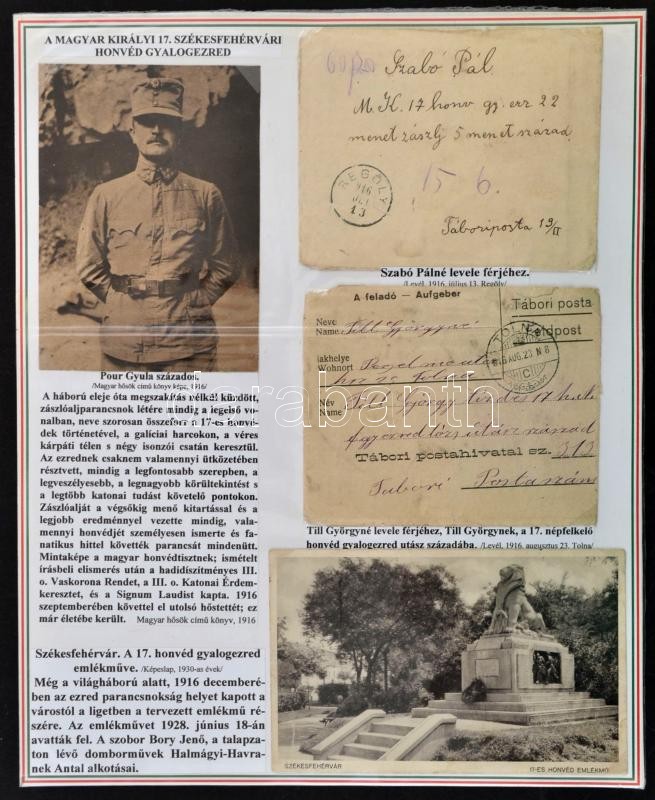 A MAGYAR KIRÁLYI 17. SZÉKESFEHÉRVÁRI
HONVÉD GYALOGEZRED
Pour Gyula százados.
/Magyar hősök című könyv képe, 1916/
A háború eleje óta megszakítás nélkül küzdött,
zászlóaljparancsnok létére mindig a legelső vo-
nalban, neve szorosan összeforrt a 17-es honvé-
dek történetével, a galíciai harcokon, a véres
kárpáti télen s négy isonzói csatán keresztül.
Az ezrednek csaknem valamennyi ütközetében
résztvett, mindig a legfontosabb szerepben, a
legveszélyesebb, a legnagyobb körültekintést s
a legtöbb katonai tudást követelő pontokon.
Zászlóalját a végsőkig menő kitartással és a
legjobb eredménnyel vezette mindig, vala-
mennyi honvédjét személyesen ismerte és fa-
natikus hittel követték parancsát mindenütt.
Mintaképe a magyar honvédtisztnek; ismételt
írásbeli elismerés után a hadidíszítményes III.
o. Vaskorona Rendet, a III. o. Katonai Érdem-
keresztet, és a Signum Laudist kapta. 1916
szeptemberében követtel el utolsó hőstettét; ez
már életébe került. Magyar hősök című könyv, 1916
Székesfehérvár. A 17. honvéd gyalogezred
emlékműve. /Képeslap, 1930-as évek/
Még a világháború alatt, 1916 decemberé-
ben az ezred parancsnokság helyet kapott a
várostól a ligetben a tervezett emlékmű ré-
szére. Az emlékművet 1928. június 18-án
avatták fel. A szobor Bory Jenő, a talapza-
ton lévő domborművek Halmágyi-Havra-
nek Antal alkotásai.
Szabó Pál
M. K. 17 honv gy. err 22
menet zászlj 5 menet század
15 6.
REGÖLY
916
13
Táboriposta 19/II
Szabó Pálné levele férjéhez.
/Levél, 1916. július 13. Regöly/
A feladó — Aufgeber
Tábori posta
Feldpost
Neve
Name
Till Györgyné
lakhelye
Wohnort
TOLNA
916 AUG. 23 N 8
C
Név
Name
Till György
Tábori postahivatal sz. 313
Tabori Postaszám
Till Györgyné levele férjéhez, Till Györgynek, a 17. népfelkelő
honvéd gyalogezred utász századába. /Levél, 1916. augusztus 23. Tolna/
SZÉKESFEHÉRVÁR
17-ES HONVÉD EMLÉKMŰ
darabanth